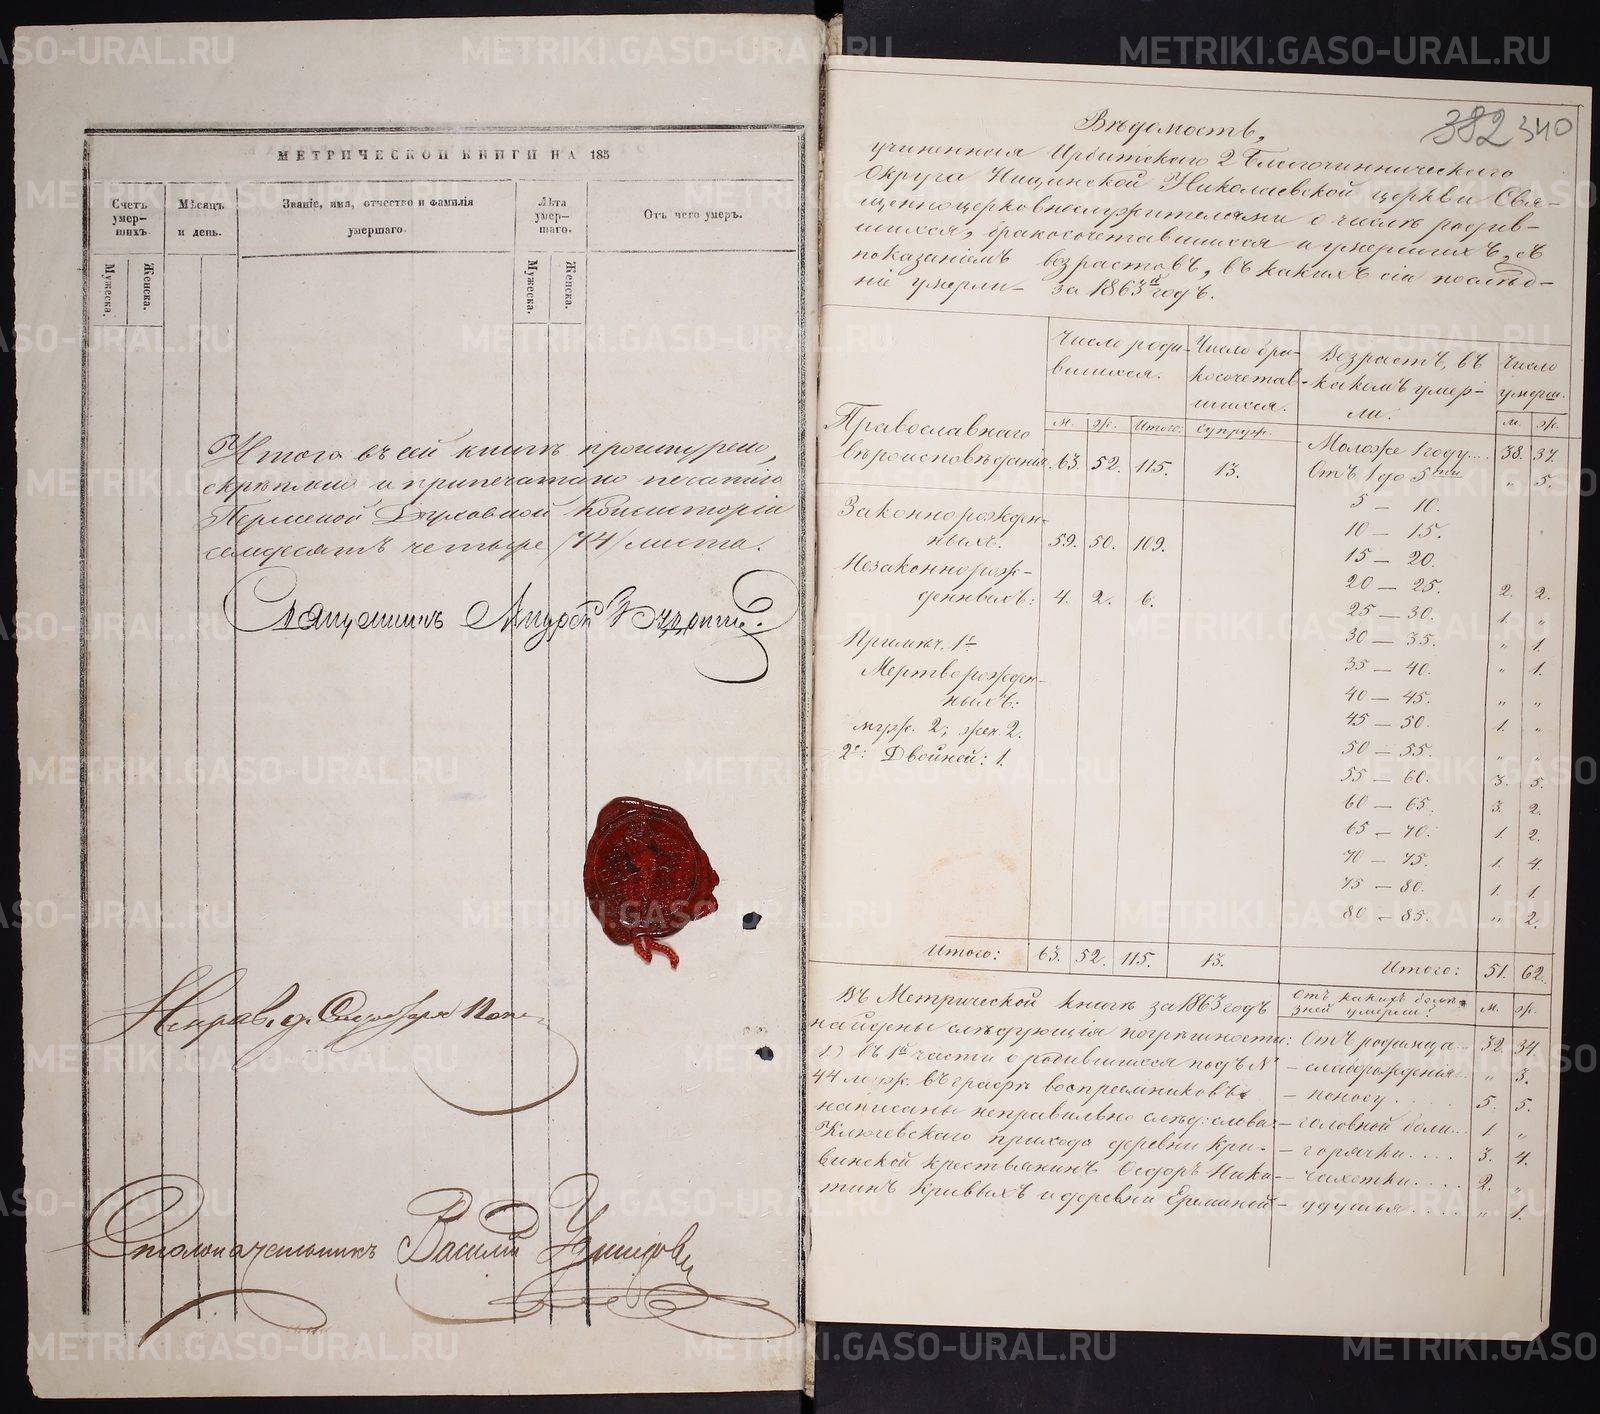 МЕТРИЧЕСКОЙ КНИГИ НА 185
Счетъ умер-шихъ.
Мѣсяцъ и день.
Званіе, имя, отчество и фамилія умершаго.
Лѣта умер-шаго.
Отъ чего умеръ.
Мужеска.
Женска.
Мужеска.
Женска.
Итого въ сей книгѣ прошнурено,
скрѣплено и припечатано печатію
Пермской Духовной Консисторіи
семдесятъ четыре /74/ листа.
Священникъ Андрей
Исправ. д. Секретаря
Столоначальникъ Василій
382 340
Вѣдомость,
учиненная Ирбитскаго 2 Благочинническаго
Округа Ницинской Николаевской церкви Свя-
щенноцерковнослужителями о числѣ родив-
шихся, бракосочетавшихся и умершихъ, съ
показаніемъ возрастовъ, въ какихъ сіи послѣд-
ніе умерли – за 1863й годъ.
Число роди-вшихся.
Число бра-косочетав-шихся.
Возрастъ, въ какомъ умер-ли.
Число умерш.
м. ж. Итого: супруж. м. ж.
Православнаго
вѣроисповѣданія 63. 52. 115. 13.
Моложе 1 году.... 38. 37.
Отъ 1 до 5ти „ 5.
5 – 10.
10 – 15.
15 – 20.
20 – 25. 2. 2.
25 – 30. 1. „
30 – 35. „ 1.
35 – 40. „ 1.
40 – 45. „ „
45 – 50. 1. „
50 – 55. „ „
55 – 60. 3. 5.
60 – 65. 3. 2.
65 – 70. 1. 2.
70 – 75. 1. 4.
75 – 80. 1. 1.
80 – 85. „ 2.
Законнорожден-
ныхъ. 59. 50. 109.
Незаконнорож-
денныхъ: 4. 2. 6.
Примѣч. 1е
Мертворожден-
ныхъ:
муж. 2; жен. 2.
2е: Двойней: 1.
Итого: 63. 52. 115. 13. Итого: 51. 62.
Въ Метрической книгѣ за 1863 годъ
найдены слѣдующія погрѣшности:
1.) въ 1й части о родившихся подъ №
44 муж. въ графѣ воспреемниковъ
написаны неправильно слѣд: слова:
Ключевскаго прихода деревни Кри-
винской крестьянинъ Ѳедоръ Ники-
тинъ Кривыхъ и деревни Ереминой
Отъ какихъ болѣ-зней умерли? м. ж.
Отъ родимца.. 32. 34.
– слаборожденія.. „ 3.
– поносу..... 5. 5.
– головной боли.. 1. „
– горячки.... 3. 4.
– чахотки.... 2. „
– удушья.... „ 1.
METRIKI.GASO-URAL.RU